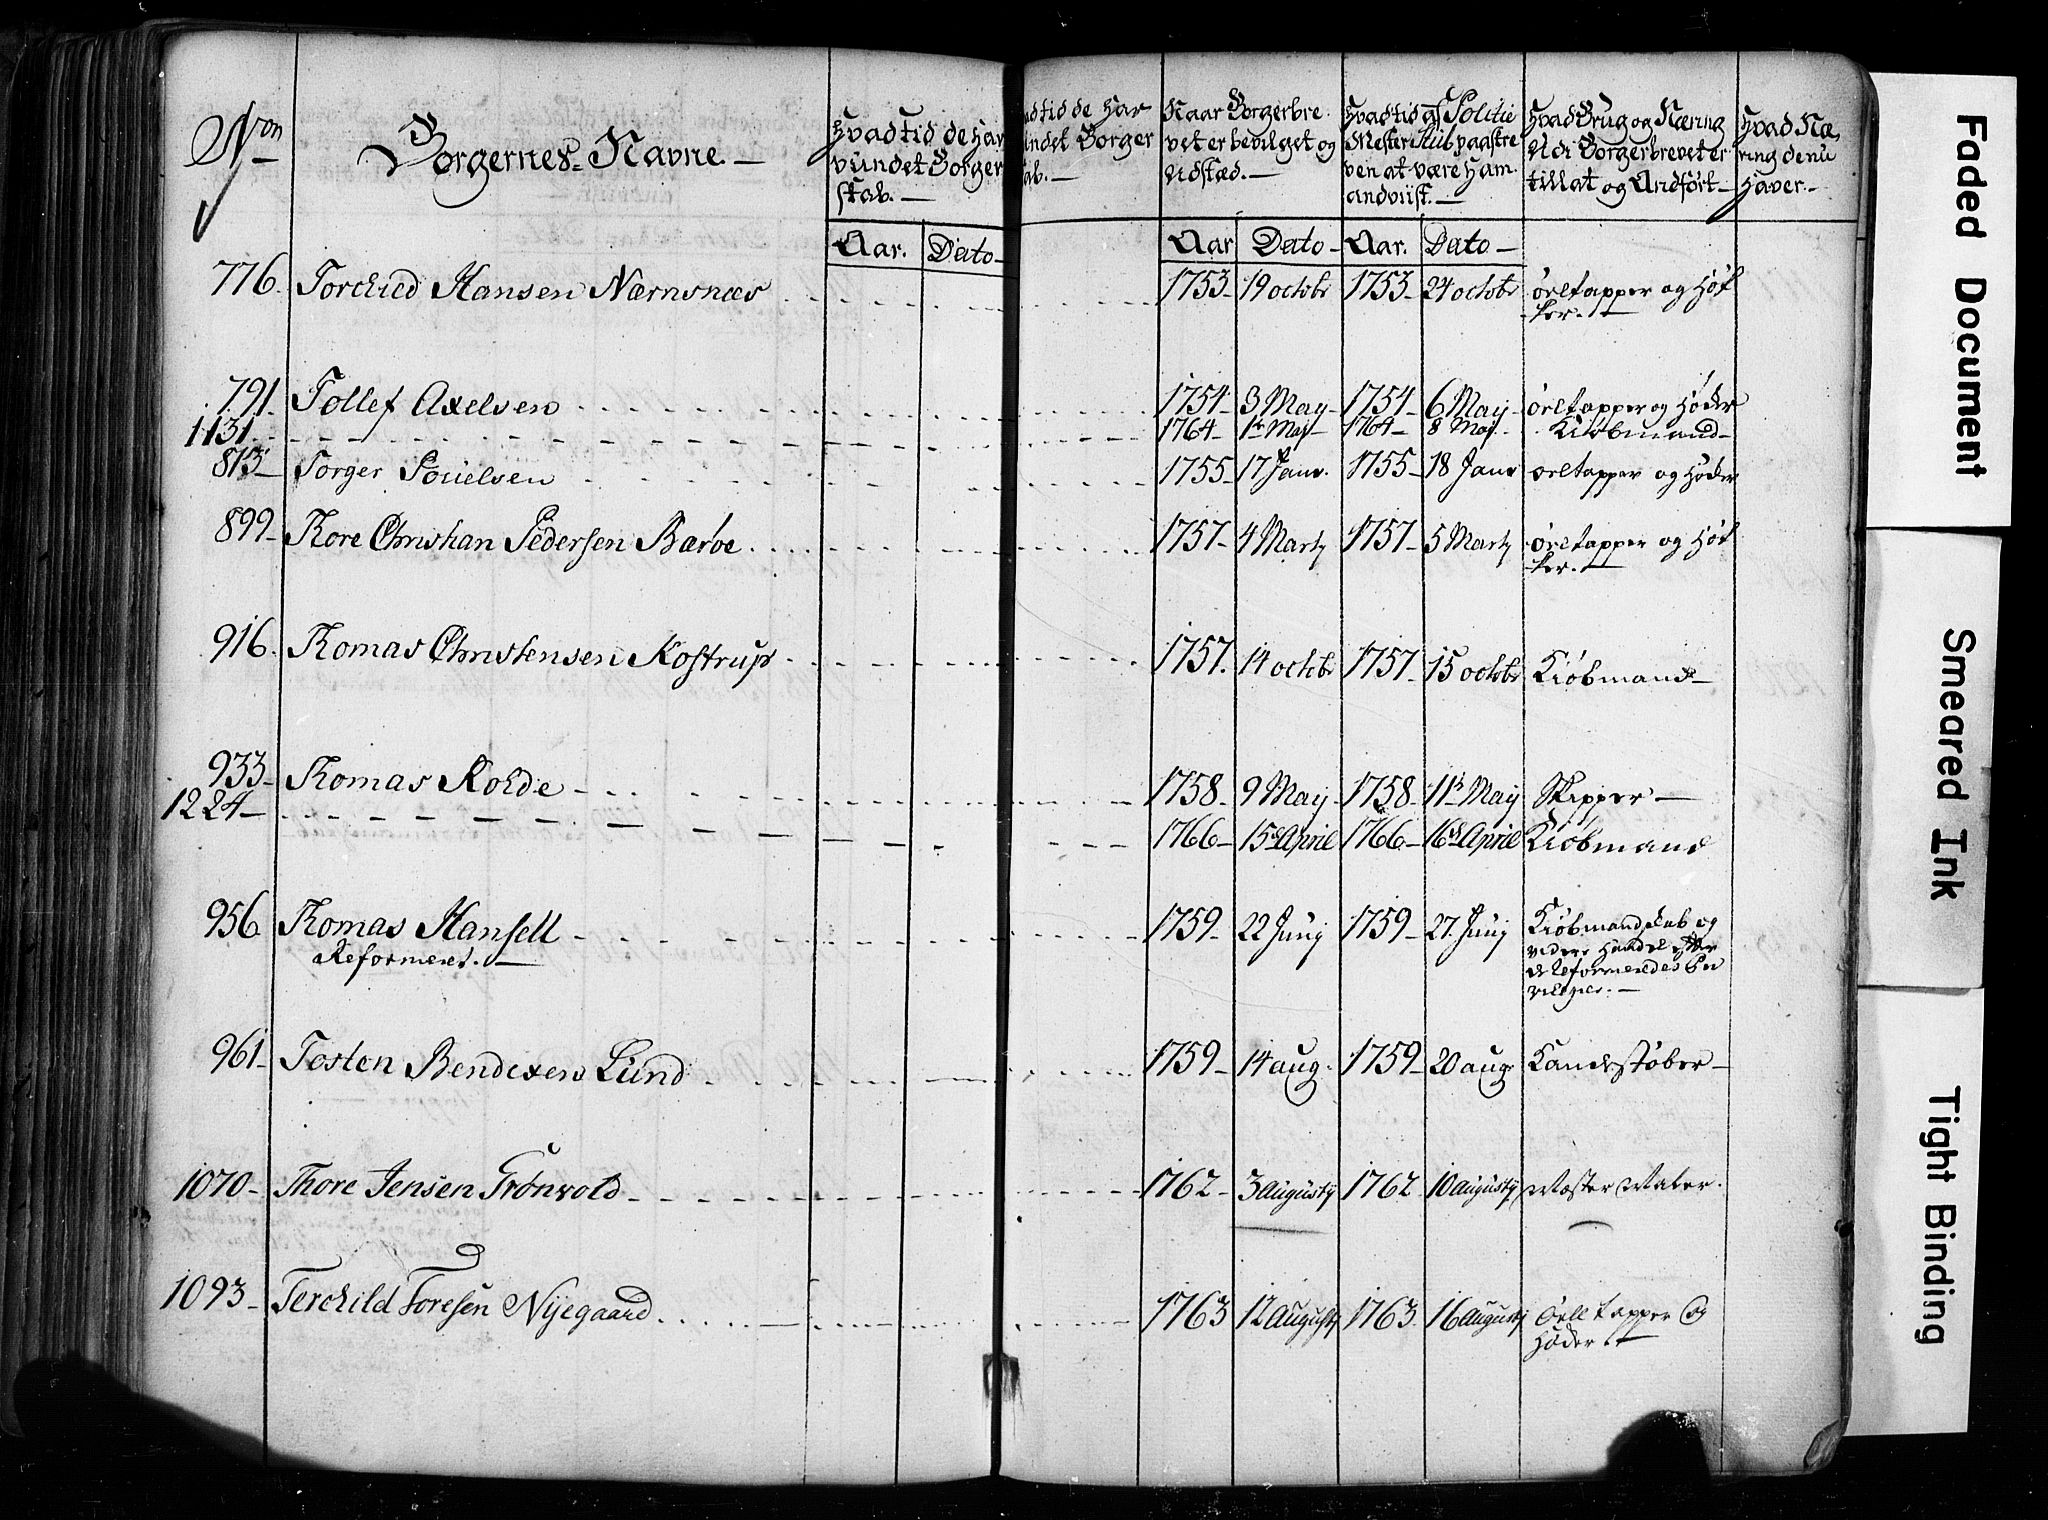 Non
Borgernes Navne.
Hvad tid de har vundet Borgerskab.
Naar Borgerbrevet er bevilget og udstæd.
Hvad tid af Politie Mester Stub paaskreven at være ham andviist.
Hvad Brug og Næring Udi Borgerbrevet er tillat og Andført
Hvad Næring de nu Haver.
Aar. Dato Aar Dato Aar. Dato
776. Torchied Hansen Nærnsnæs 1753 19 octobr 1753 24 octobr øeltapper og Høker.
791. Tollef Axelsen 1754 3 May 1754 6 May øeltapper og Høcker
1131. 1764 1te May 1764 8 May. Kiøbmand
813 Torger Poüelsen 1755 17 Janv. 1755 18 Janv øeltapper og Høcker
899 Thore Christian Pedersen Barbe 1757 4 Marty 1757 5 Marty øeltapper og Høker.
916. Thomas Christensen Kostrup 1757. 14 octobr 1757 15 octobr Kiøbmand
933 Thomas Rohde 1758 9 May 1758 11te May Skipper
1224 1766 15de April 1766 16de April Kiøbmand
956 Thomas Hansell 1759 22 Juny 1759 27 Juny Kiøbmandskab og
Reformeret. videre Handel efter
de Reformeredes Privilegier.
961 Tosten Bendixen Lund 1759 14 aug. 1759 20 aug Kandestøber
1070 Thore Jensen Grönvold 1762 3 augusty 1762 10 augusty Mæster Maler.
1093 Terchild Toresen Nÿegaard 1763 12 augusty 1763 16 augusty Öelltapper og
Høcker
Faded Document
Smeared Ink
Tight Binding